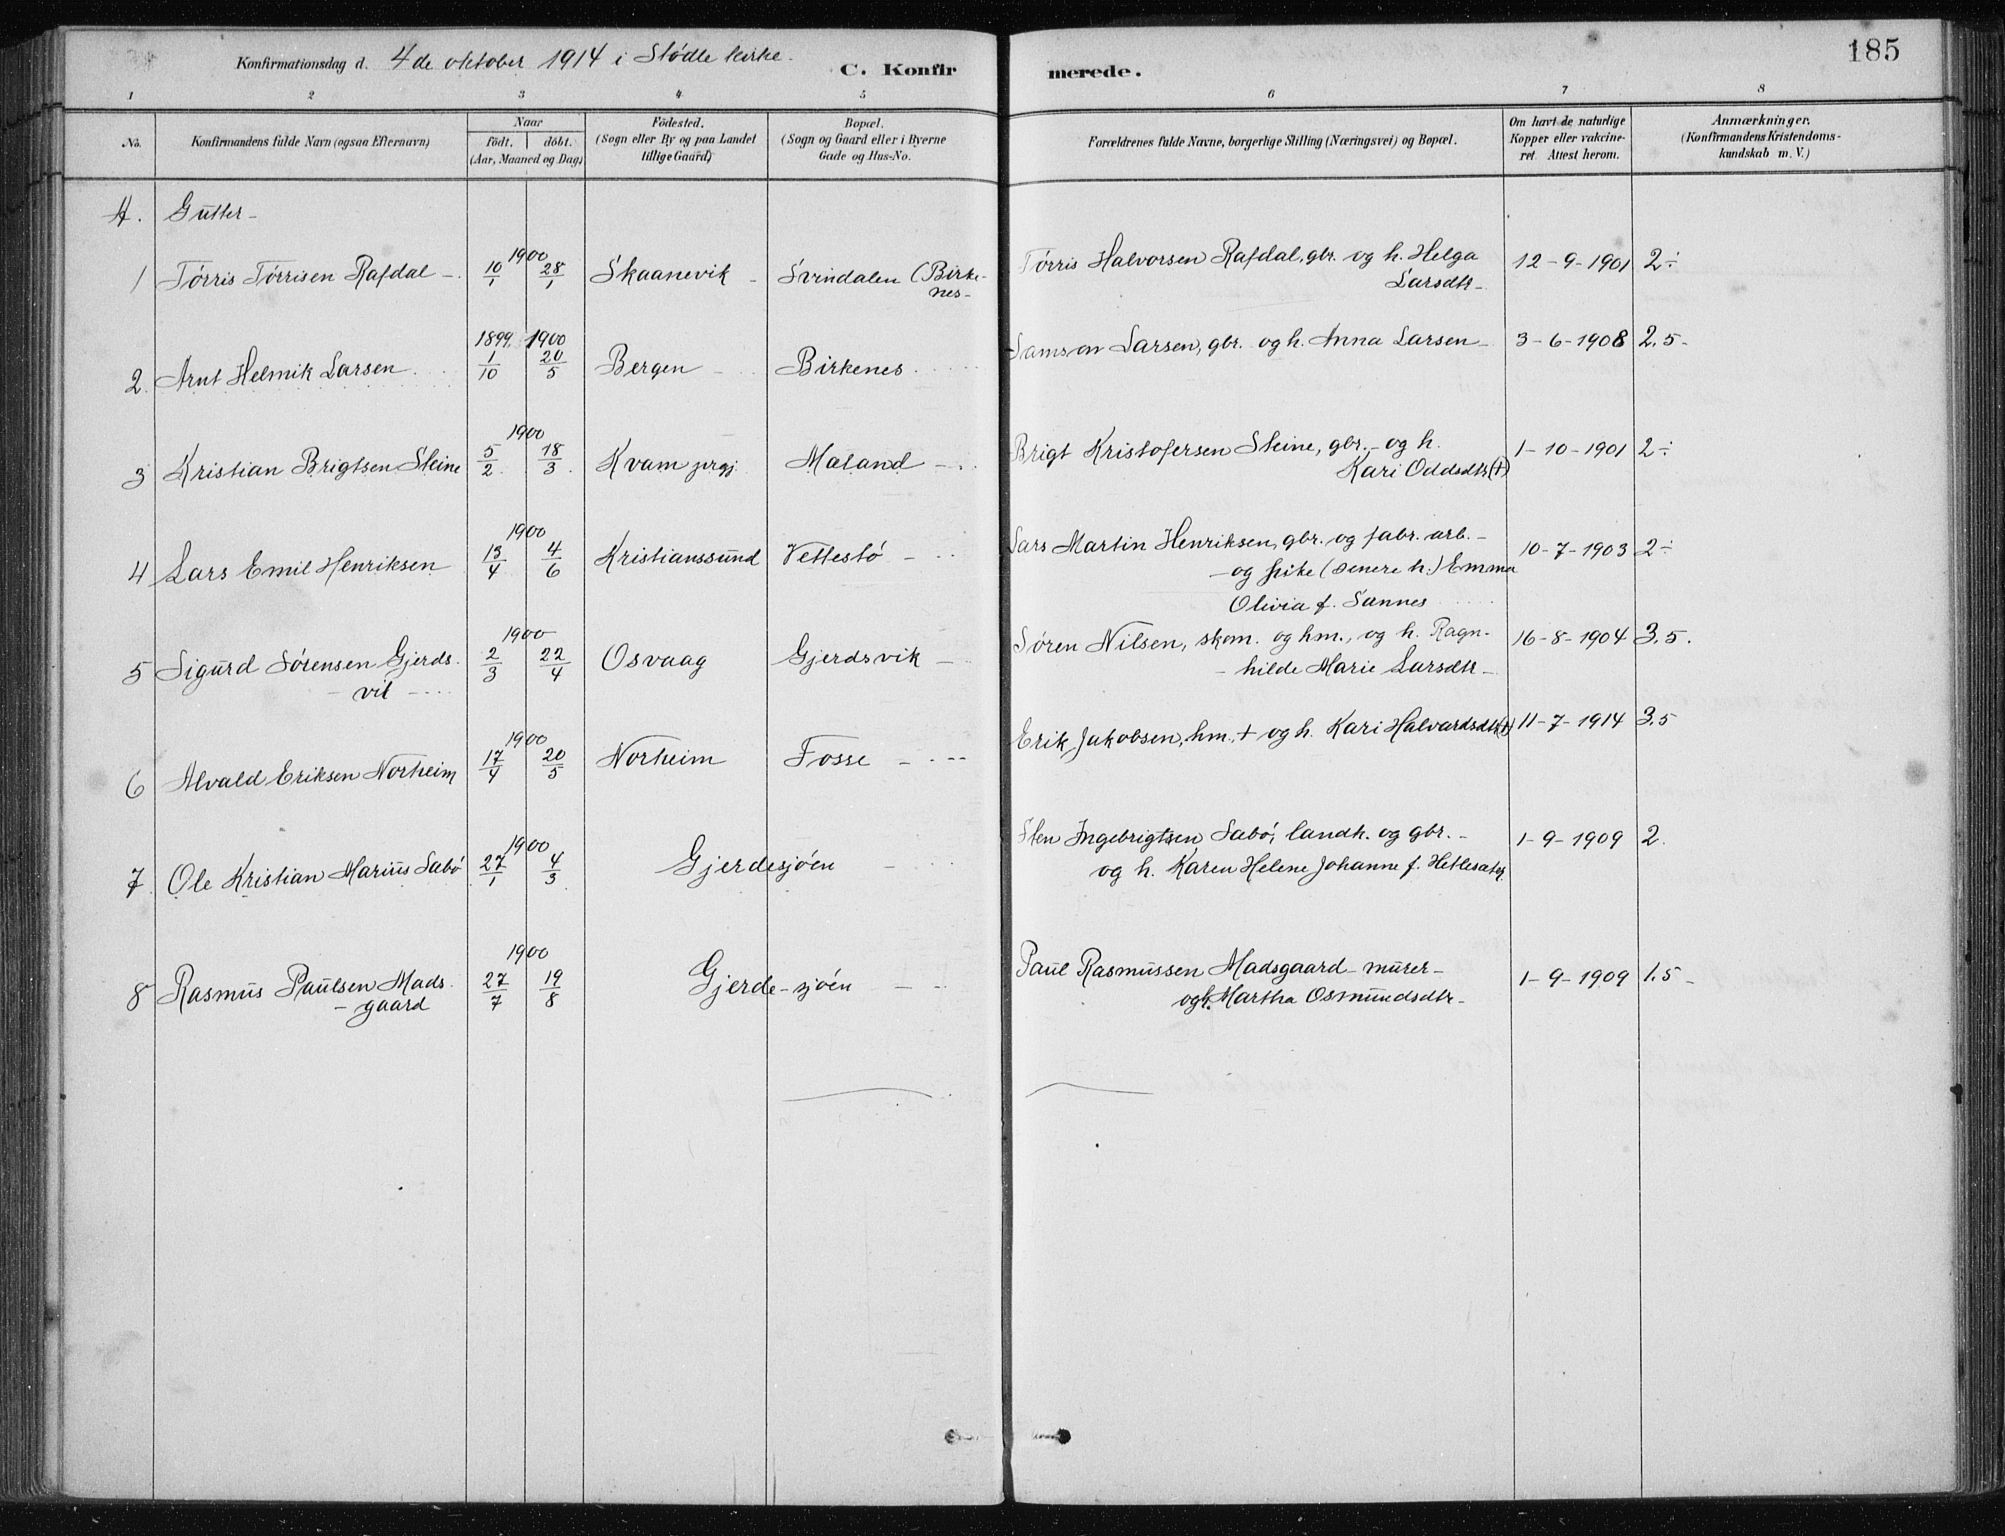 Konfirmationsdag d. 4 de oktober 1914 i Stødle kirke.
C. Konfirmerede.
185
1 2 3 4 5 6 7 8
No.
Konfirmandens fulde Navn (ogsaa Efternavn)
Naar
födt. döbt.
(Aar, Maaned og Dag)
Födested.
(Sogn eller By og paa Landet
tillige Gaard)
Bopæl.
(Sogn og Gaard eller i Byerne
Gade og Hus-No.
Forældrenes fulde Navne, borgerlige Stilling (Næringsvei) og Bopæl.
Om havt de naturlige
Kopper eller vakcine-
ret. Attest herom.
Anmærkninger.
(Konfirmandens Kristendoms-
kundskab m. V.)
A. Gutter-
1 Tørris Tørrisen Rafdal - 1900 10/1 28/1 Skaanevik - Svindalen (Birke-
nes-
Tørris Halvorsen Rafdal, gbr. og h. Helga
Larsdtr- 12-9-1901 2÷
2. Arnt Helmik Larsen 1899 1/10 1900 20/5 Bergen - Birkenes
Samson Larsen, gbr. og h. Anna Larsen- 3-6-1908 2.5-
3 Kristian Brigtsen Steine 1900 5/2 18/3 Kvam prgj. Maland -
Brigt Kristofersen Steine, gbr. - og h.
Kari Oddsdtr (+) 1-10-1901 2÷
4 Lars Emil Henriksen 1900 13/4 4/6 Kristianssund Vettestø -
Lars Martin Henriksen, gbr. og fabr. arb. -
- og pike (senere h.) Emma
Olivia f. Sannes 10-7-1903 2÷
5 Sigurd Sørensen Gjerds-
- vik - 1900 2/3 22/4 Osvaag Gjerdsvik -
Søren Nilsen, skom. og hm., og h. Ragn-
- hilde Marie Larsdtr- 16-8-1904 3.5.
6 Alvald Eriksen Norheim 1900 17/4 20/5 Norheim Fosse -
Erik Jakobsen, hm. + og h. Kari Halvardsdtr (+) 11-7-1914 3.5
7. Ole Kristian Marius Sabø 1900 27/1 4/3 Gjerdesjøen -
Sten Ingebrigtsen Sabø, landh. og gbr. -
og h. Karen Helene Johanne f. Hetlesater 1-9-1909 2.
8 Rasmus Paulsen Mads-
- gaard 1900 27/7 19/8 Gjerde-sjøen -
Paul Rasmussen Madsgaard - murer-
og h. Martha Osmundsdtr- 1-9-1909 1.5-